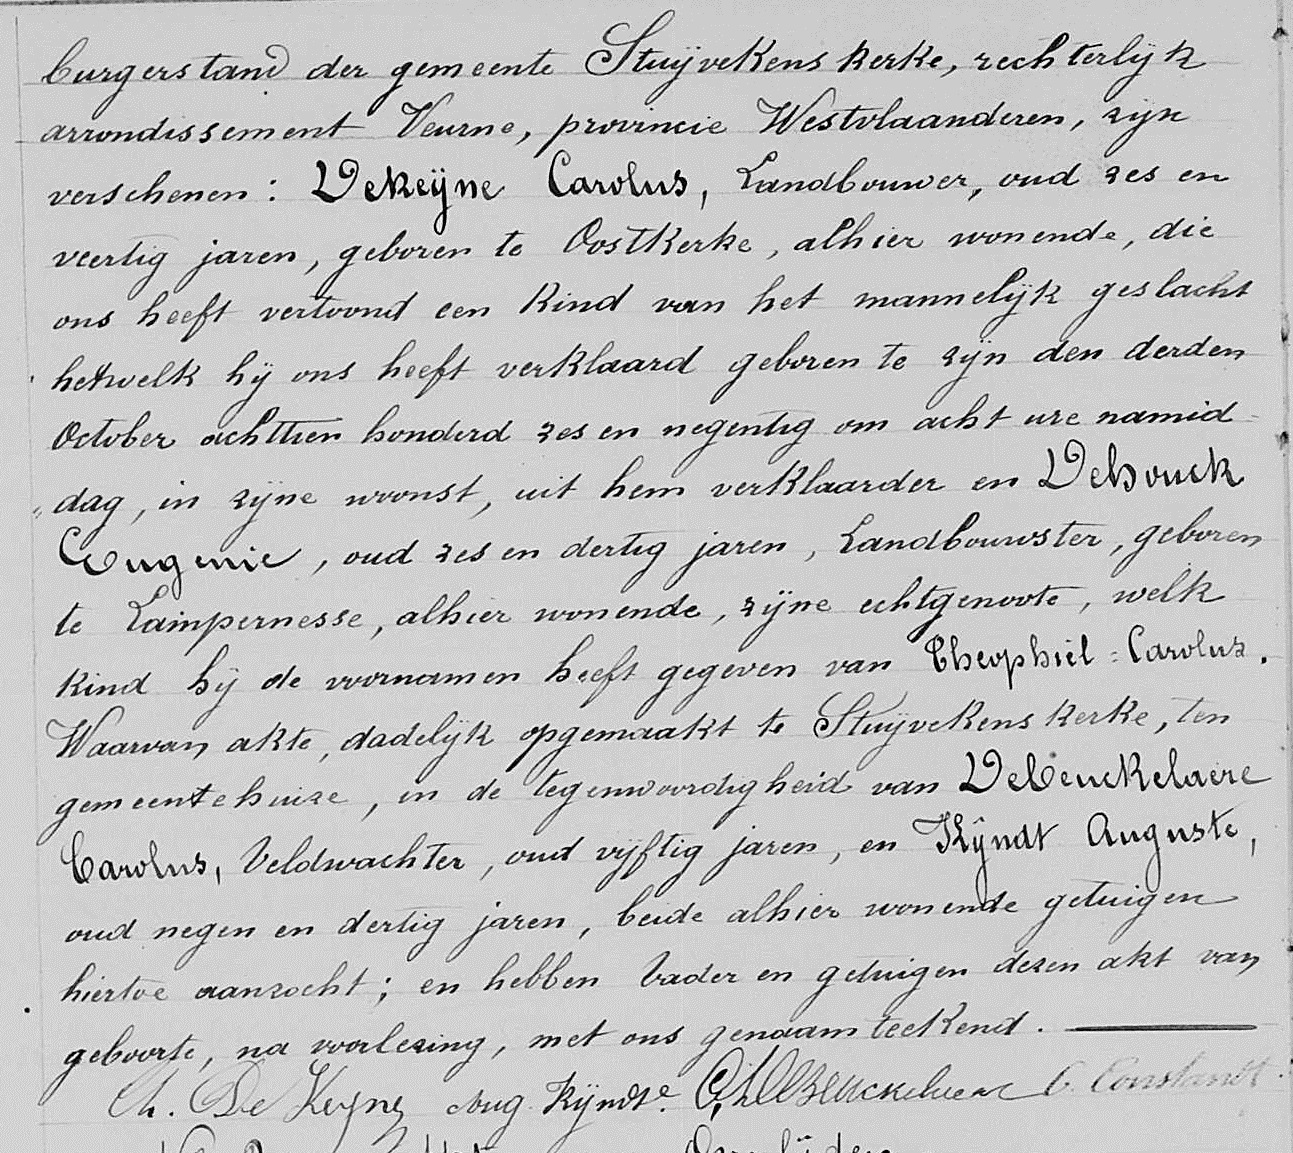 burgerstand der gemeente Stuÿvekenskerke, rechterlÿk
arrondissement Veurne, provincie Westvlaanderen, zÿn
verschenen : Dekeÿne Carolus, Landbouwer, oud zes en
veertig jaren, geboren te Oostkerke, alhier wonende, die
ons heeft vertoond een kind van het mannelÿk geslacht
hetwelk hÿ ons heeft verklaard geboren te zÿn den derden
October achttien honderd zes en negentig om acht ure namid-
"dag, in zÿne woonst, uit hem verklaarder en Dehouck
Eugenie, oud zes en dertig jaren, Landbouwster, geboren
te Lampernesse, alhier wonende, zÿne echtgenoote, welk
kind hÿ de voornamen heeft gegeven van Theophiel = Carolus.
Waarvan akte, dadelÿk opgemaakt te Stuÿvekenskerke, ten
gemeentehuize, in de tegenwoordigheid van Debeuckelaere
Carolus, Veldwachter, oud vÿftig jaren, en Kÿndt Auguste,
oud negen en dertig jaren, beide alhier wonende getuigen
hiertoe aanzocht ; en hebben Vader en getuigen dezen akt van
geboorte, na voorlezing, met ons genaamteekend.
Ch. De Keyne Aug Kÿndt. Ch DBeuckelaere C. Constandt.